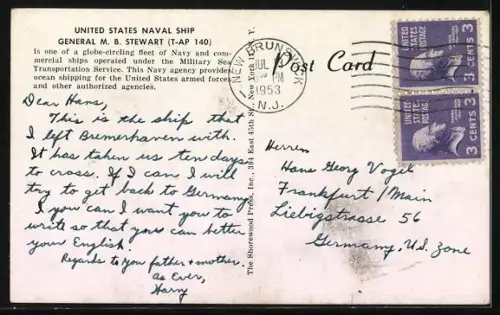 UNITED STATES NAVAL SHIP
GENERAL M. B. STEWART (T-AP 140)
Is one of a globe-circling fleet of Navy and com-
mercial ships operated under the Military Sea
Transportation Service. This Navy agency provides
ocean shipping for the United States armed forces
and other authorized agencies.
Dear Hans,
This is the ship that
I left Bremerhaven with.
It has taken us ten days
to cross. If I can I will
try to get back to Germany
I you can I want you to
write so that you can better
your English.
Regards to your father + mother.
As Ever,
Harry
The Shorewood Press, Inc., 304 East 45th St., New York N. Y.
Post Card
NEW BRUNSWICK
JUL
PM
1953
N.J.
UNITED STATES POSTAGE
3 CENTS 3
UNITED STATES POSTAGE
3 CENTS 3
Herren
Hans Georg Vogel
Frankfurt / Main
Liebigstrasse 56
Germany, U.S. Zone